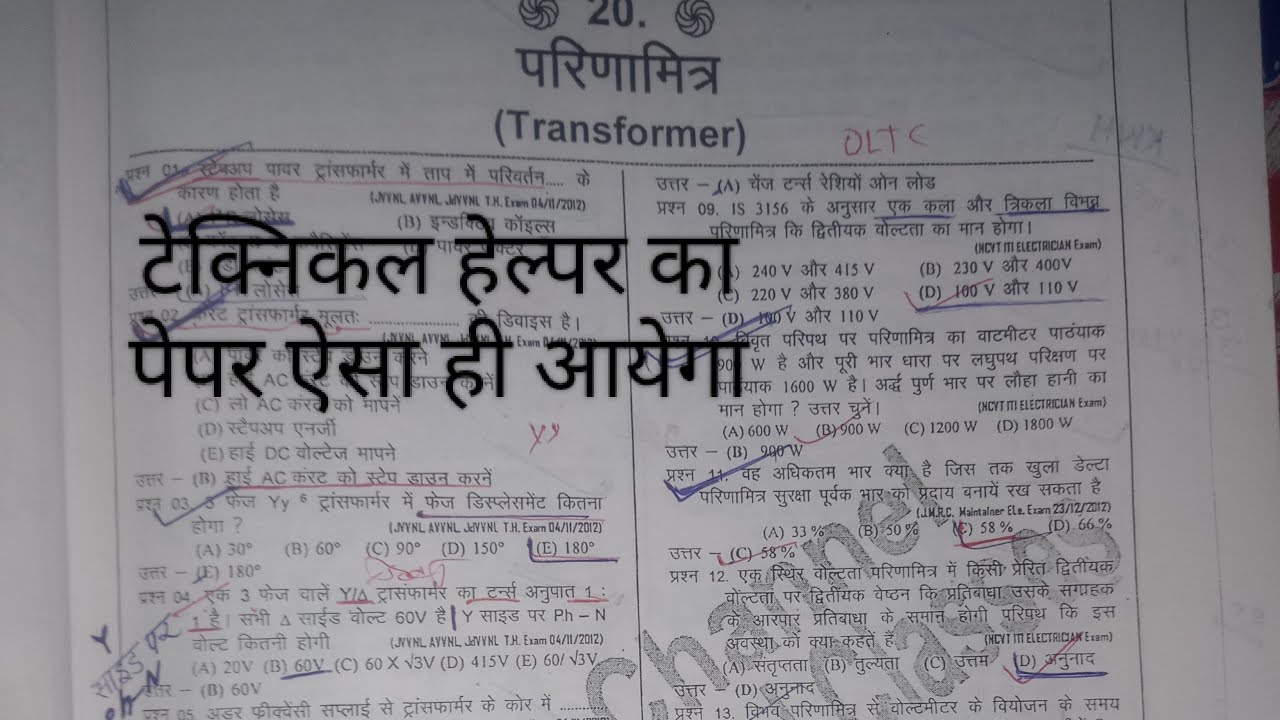 20.
परिणामित्र
(Transformer)
OLTC
टेक्निकल हेल्पर का
पेपर ऐसा ही आयेगा
प्रश्न 01. स्टेपअप पावर ट्रांसफार्मर में ताप में परिवर्तन..... के
कारण होता है (JVVNL, AVVNL, JdVVNL T.H. Exam 04/11/2012)
लोसेस (B) इन्डक्टिव कॉइल्स
उत्तर –
प्रश्न 02. करंट ट्रांसफार्मर मूलतः ...................... की डिवाइस है।
(C) लो AC करंट को मापनें
(D) स्टैपअप एनर्जी
(E) हाई DC वोल्टेज मापने
Yy
उत्तर – (B) हाई AC करंट को स्टेप डाउन करनें
प्रश्न 03. 3 फेज Yy 6 ट्रांसफार्मर में फेज डिस्प्लेसमेंट कितना
होगा ? (JVVNL AVVNL JdVVNL T.H. Exam 04/11/2012)
(A) 30° (B) 60° (C) 90° (D) 150° (E) 180°
उत्तर – (E) 180°
प्रश्न 04. एक 3 फेज वालें Y/Δ ट्रासफार्मर का टर्न्स अनुपात 1 :
1 है। सभी Δ साईड वोल्ट 60V है Y साइड पर Ph – N
वोल्ट कितनी होगी (JVVNL AVVNL JdVVNL T.H. Exam 04/11/2012)
(A) 20V (B) 60V (C) 60 X √3V (D) 415V (E) 60/ √3V
उत्तर – (B) 60V
साइड पर
प्रश्न 05. अंडर फ्रीक्वेंसी सप्लाई से ट्रांसफार्मर के कोर में ........
उत्तर – (A) चेंज टर्न्स रेशियों ओन लोड
प्रश्न 09. IS 3156 के अनुसार एक कला और त्रिकला विभव
परिणामित्र कि द्वितीयक वोल्टता का मान होगा।
(NCVT ITI ELECTRICIAN Exam)
240 V और 415 V (B) 230 V और 400V
(C) 220 V और 380 V (D) 100 V और 110 V
उत्तर – (D) 100 V और 110 V
विवृत परिपथ पर परिणामित्र का वाटमीटर पाठ्यांक
W है और पूरी भार धारा पर लघुपथ परिक्षण पर
1600 W है। अर्द्ध पुर्ण भार पर लौहा हानी का
मान होगा ? उत्तर चुनें। (NCVT ITI ELECTRICIAN Exam)
(A) 600 W (B) 900 W (C) 1200 W (D) 1800 W
उत्तर – (B) 900 W
प्रश्न 11. वह अधिकतम भार क्या है जिस तक खुला डेल्टा
परिणामित्र सुरक्षा पूर्वक भार को प्रदाय बनायें रख सकता है
(J.M.R.C. Maintainer Ele. Exam 23/12/2012)
(A) 33 % (B) 50 % (C) 58 % (D) 66 %
उत्तर – (C) 58 %
प्रश्न 12. एक स्थिर वोल्टता परिणामित्र में किसी प्रेरित द्वितीयक
वोल्टता पर द्वितीयक वेष्ठन कि प्रतिबाधा उसके संग्राहक
के आरपार प्रतिबाधा के समान होगी परिपथ कि इस
अवस्था को क्या कहते हैं (NCVT ITI ELECTRICIAN Exam)
(A) संतृप्तता (B) तुल्यता (C) उत्तम (D) अनुनाद
उत्तर – (D) अनुनाद
प्रश्न 13. विभव परिणामित्र से वोल्टमीटर के वियोजन के समय
Channel
Classes